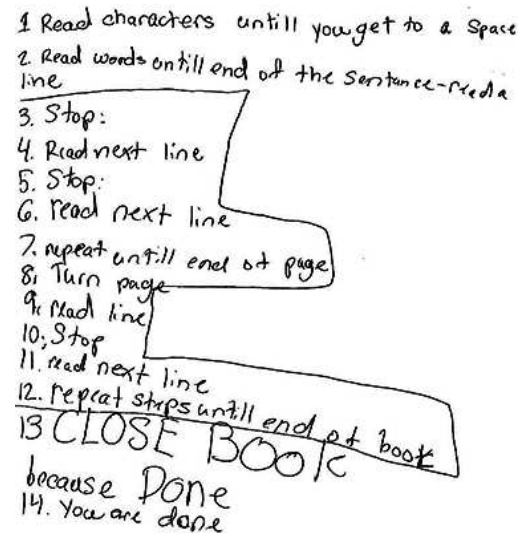 1 Read characters untill you get to a space
2. Read words untill end of the sentance-read a
line
3. Stop:
4. Read next line
5. Stop:
6. read next line
7. repeat untill end of page
8. Turn page
9. read line
10. Stop
11. read next line
12. repeat steps untill end of book
13 CLOSE BOOK
because Done
14. You are done